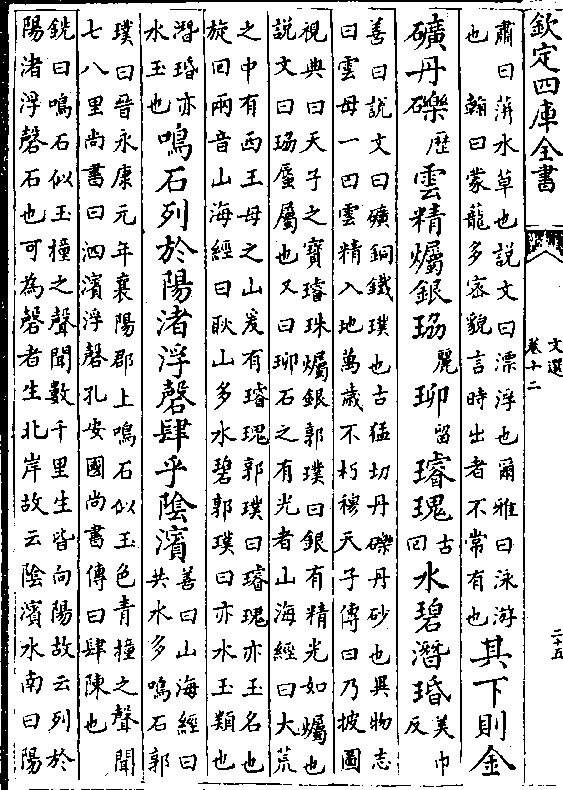 欽定四庫全書
文選
卷十二
二十五
肅曰蓱水草也説文曰漂浮也爾雅曰泳游
也　翰曰蒙籠多密貌言時出者不常有也
其下則金
礦丹礫歴雲精爥銀珕麗珋留璿瑰古回水碧潛琘美巾反
善曰説文曰礦銅鐵璞也古猛切丹礫丹砂也異物志
曰雲母一曰雲精入地萬歲不朽穆天子傳曰乃披圖
視典曰天子之寶璿珠爥銀郭璞曰銀有精光如爥也
説文曰珕蜃屬也又曰珋石之有光者山海經曰大荒
之中有西王母之山爰有璿瑰郭璞曰璿瑰亦玉名也
旋回兩音山海經曰耿山多水碧郭璞曰亦水玉類也
潛琘亦
水玉也
鳴石列於陽渚浮磬肆乎陰濱
善曰山海經曰
共水多鳴石郭
璞曰晉永康元年襄陽郡上鳴石似玉色青撞之聲聞
七八里尚書曰泗濱浮磬孔安國尚書傳曰肆陳也
銑曰鳴石似玉撞之聲聞數千里生皆向陽故云列於
陽渚浮磬石也可為磬者生北岸故云陰濱水南曰陽